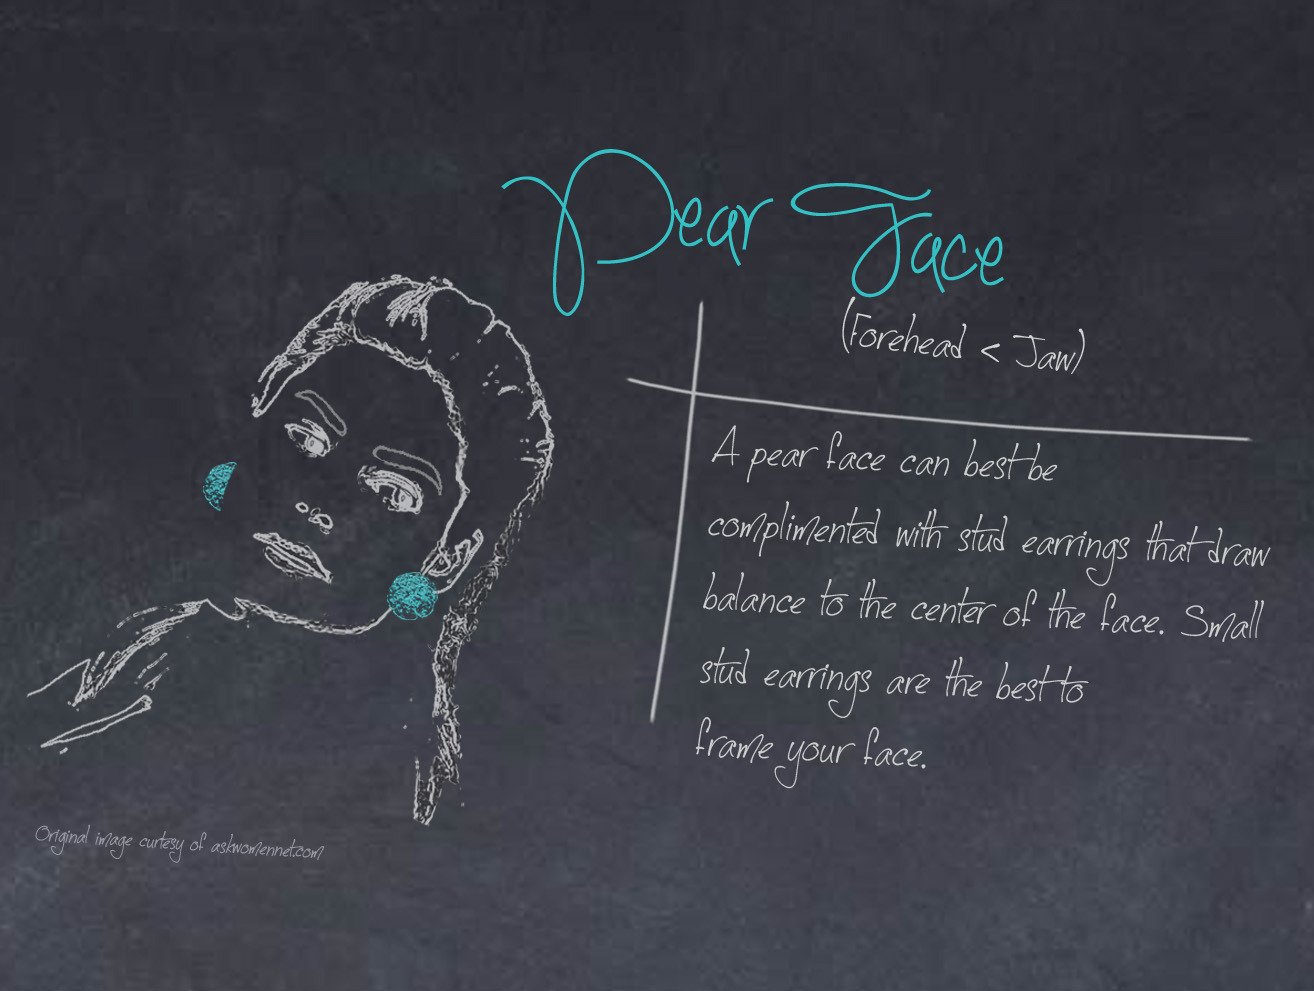 Pear Face
(Forehead < Jaw)
A pear face can best be
complimented with stud earrings that draw
balance to the center of the face. Small
stud earrings are the best to
frame your face.
Original image curtesy of askwomennet.com